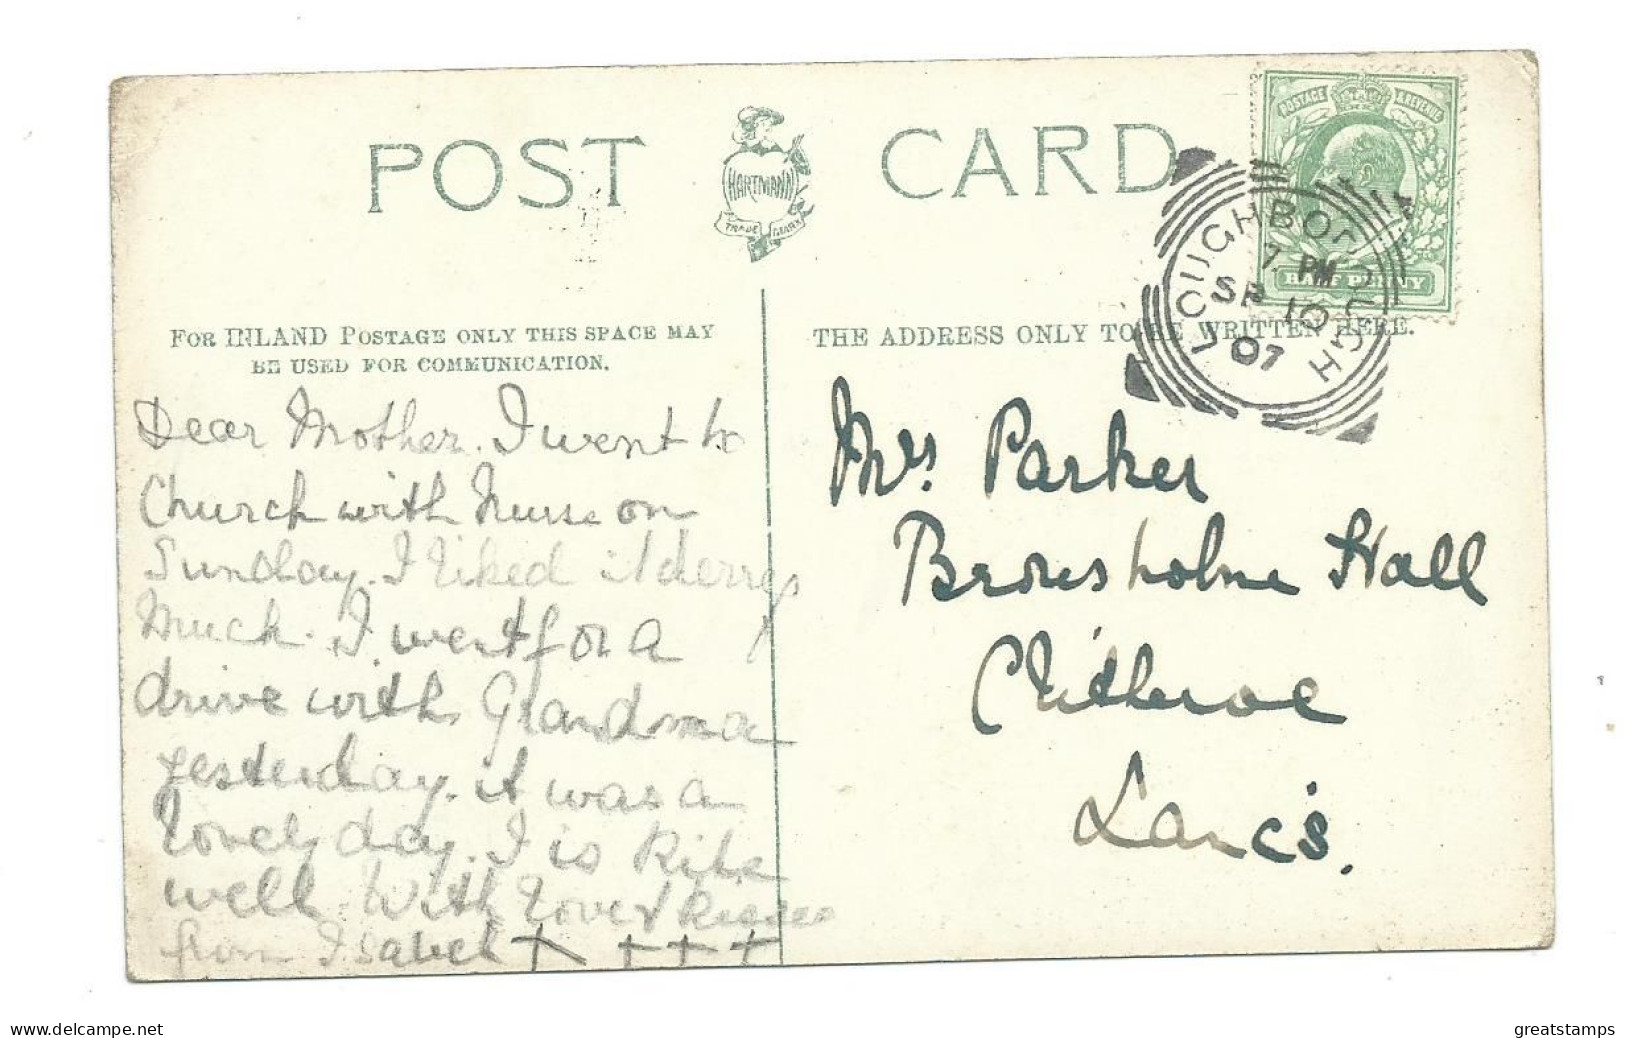 POST CARD
HARTMANN
TRADE MARK
POSTAGE & REVENUE
HALF PENNY
LOUGHBOROUGH
7 PM
SP 10
07
FOR INLAND POSTAGE ONLY THIS SPACE MAY
BE USED FOR COMMUNICATION.
THE ADDRESS ONLY TO BE WRITTEN HERE.
Dear Mother. I went to
Church with Nurse on
Sunday. I liked it
Much. I went for a
drive with Grandma
yesterday. it was a
lovely day. I is
well. With love &
from Isabel X + + +
Mrs. Parker
Browsholme Hall
Clitheroe
Lancs.
www.delcampe.net
greatstamps